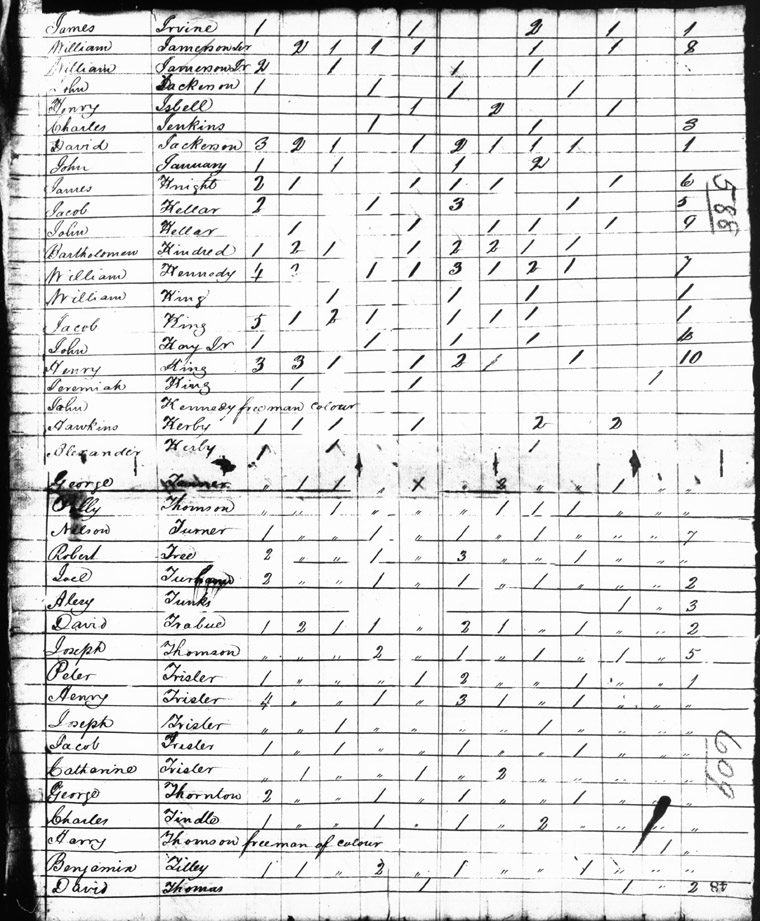 James Irvine 1 1 2 1 1
William Jamerson Sr 2 1 1 1 1 1 8
William Jamerson Jr 2 1 1 1
John Jackerson 1 1 1 1
Henry Isbell 1 2 1
Charles Jenkins 1 1 3
David Jackerson 3 2 1 1 2 1 1 1 1
John January 1 1 1 2
James Knight 2 1 1 1 1 1 6
Jacob Kellar 2 1 3 1 5
John Kellar 1 1 1 1 1 9
Bartholomew Kindred 1 2 1 1 2 2 1 1
William Kennedy 4 3 1 1 3 1 2 1 7
William King 1 1 1 1
Jacob King 5 1 2 1 1 1 1 1
John Kay Jr 1 1 1 1
Henry King 3 3 1 1 2 1 1 10
Jeremiah King 1 1 1
John Kennedy freeman colour
Hawkins Kerby 1 1 1 1 2 2
Alexander Kerby 1 1 1
588
George 〃 1 1 〃 〃 〃 〃 1 〃 〃
Thomson 〃 〃 1 〃 〃 〃 1 1 1 〃 〃 〃
Nelson Turner 1 〃 〃 1 〃 1 〃 1 〃 〃 〃 7
Robert Tree 2 〃 〃 1 〃 3 〃 〃 1 〃 〃 〃
Joel 2 〃 〃 1 〃 1 〃 1 〃 〃 〃 2
Alexy Tunks 1 〃 3
David Trabue 1 2 1 1 〃 2 1 〃 1 〃 〃 2
Joseph Thomson 〃 〃 〃 2 〃 1 〃 1 〃 1 〃 5
Peter Trisler 1 〃 〃 〃 1 2 〃 〃 1 〃 〃 1
Henry Trisler 4 〃 〃 1 〃 3 1 〃 1 〃 〃 〃
Joseph Trisler 〃 〃 1 〃 〃 〃 〃 1 〃 〃 〃 〃
Jacob Trisler 1 〃 1 〃 〃 1 〃 〃 1 〃 〃 〃
Catharine Trisler 〃 1 〃 〃 1 〃 2 〃 〃 〃 〃 〃
George Thornton 2 〃 〃 1 〃 1 〃 〃 1 〃 〃
Charles Tindle 〃 〃 〃 1 〃 1 〃 2 〃 〃
Harry Thomson freeman of colour 1 〃
Benjamin Tilley 1 1 〃 2 〃 1 〃 〃 1 〃 〃 〃
David Thomas 1 1 〃 2
609
48